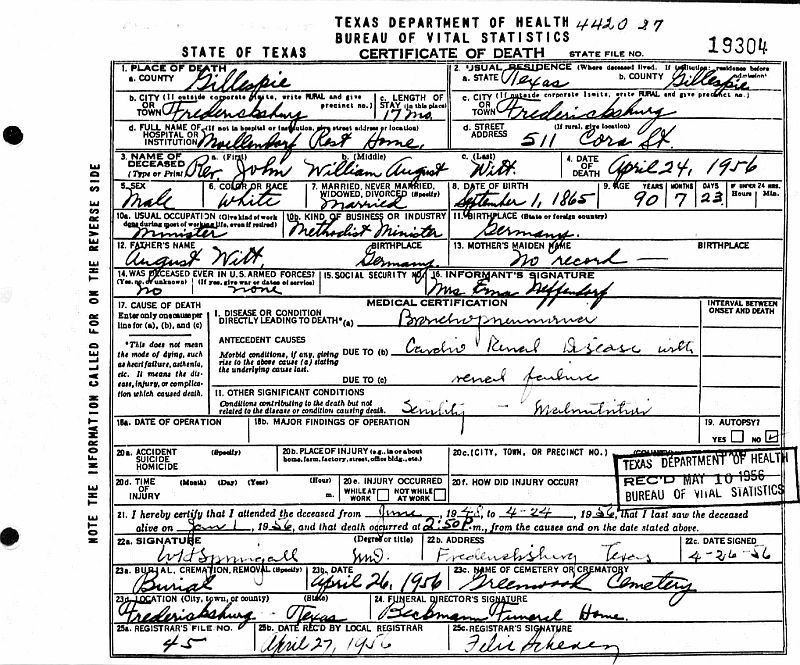 TEXAS DEPARTMENT OF HEALTH 442037
BUREAU OF VITAL STATISTICS
STATE OF TEXAS CERTIFICATE OF DEATH STATE FILE NO. 19304
1. PLACE OF DEATH
a. COUNTY Gillespie
2. USUAL RESIDENCE (Where deceased lived. If institution: residence before admission)
a. STATE Texas b. COUNTY Gillespie
b. CITY (If outside corporate limits, write RURAL and give precinct no.) OR TOWN Fredericksburg
c. LENGTH OF STAY (in this place) 17 mo.
c. CITY (If outside corporate limits, write RURAL and give precinct no.) OR TOWN Fredericksburg
d. FULL NAME OF (If not in hospital or institution, give street address or location) HOSPITAL OR INSTITUTION Moellendorf Rest Home
d. STREET ADDRESS (If rural, give location) 511 Cora St.
3. NAME OF DECEASED (Type or Print) a. (First) Rev. John b. (Middle) William August c. (Last) Witt.
4. DATE OF DEATH April 24, 1956
5. SEX Male
6. COLOR OR RACE White
7. MARRIED, NEVER MARRIED, WIDOWED, DIVORCED (Specify) Married
8. DATE OF BIRTH September 1, 1865
9. AGE YEARS 90 MONTHS 7 DAYS 23 IF UNDER 24 HRS. Hours Min.
10a. USUAL OCCUPATION (Give kind of work done during most of working life, even if retired) Minister
10b. KIND OF BUSINESS OR INDUSTRY Methodist Minister
11. BIRTHPLACE (State or foreign country) Germany
12. FATHER'S NAME August Witt, BIRTHPLACE Germany
13. MOTHER'S MAIDEN NAME No record — BIRTHPLACE
14. WAS DECEASED EVER IN U.S. ARMED FORCES? (Yes, no, or unknown) no (If yes, give war or dates of service) none
15. SOCIAL SECURITY NO.
16. INFORMANT'S SIGNATURE Mrs Erna Neffendorf
17. CAUSE OF DEATH
Enter only one cause per line for (a), (b), and (c)
*This does not mean the mode of dying, such as heart failure, asthenia, etc. It means the disease, injury, or complication which caused death.
MEDICAL CERTIFICATION
INTERVAL BETWEEN ONSET AND DEATH
I. DISEASE OR CONDITION DIRECTLY LEADING TO DEATH* (a) Bronchopneumonia
ANTECEDENT CAUSES
Morbid conditions, if any, giving rise to the above cause (a) stating the underlying cause last.
DUE TO (b) Cardio Renal Disease with
DUE TO (c) renal failure
II. OTHER SIGNIFICANT CONDITIONS
Conditions contributing to the death but not related to the disease or condition causing death. Senility — Malnutrition
18a. DATE OF OPERATION
18b. MAJOR FINDINGS OF OPERATION
19. AUTOPSY? YES NO
20a. ACCIDENT SUICIDE HOMICIDE (Specify)
20b. PLACE OF INJURY (e.g., in or about home, farm, factory, street, office bldg., etc.)
20c. (CITY, TOWN, OR PRECINCT NO.) (COUNTY)
20d. TIME OF INJURY (Month) (Day) (Year) (Hour) m.
20e. INJURY OCCURRED WHILE AT WORK NOT WHILE AT WORK
20f. HOW DID INJURY OCCUR?
TEXAS DEPARTMENT OF HEALTH
REC'D MAY 10 1956
BUREAU OF VITAL STATISTICS
21. I hereby certify that I attended the deceased from June, 1948, to 4-24, 1956, that I last saw the deceased
alive on Jan 1, 1956, and that death occurred at 2:50 P.m., from the causes and on the date stated above.
22a. SIGNATURE (Degree or title) MD.
22b. ADDRESS Fredericksburg Texas
22c. DATE SIGNED 4-26-56
23a. BURIAL, CREMATION, REMOVAL (Specify) Burial
23b. DATE April 26, 1956
23c. NAME OF CEMETERY OR CREMATORY Greenwood Cemetery
23d. LOCATION (City, town, or county) (State) Fredericksburg - Texas
24. FUNERAL DIRECTOR'S SIGNATURE Beckmann Funeral Home.
25a. REGISTRAR'S FILE NO. 45
25b. DATE REC'D BY LOCAL REGISTRAR April 27, 1956
25c. REGISTRAR'S SIGNATURE Felix
NOTE THE INFORMATION CALLED FOR ON THE REVERSE SIDE